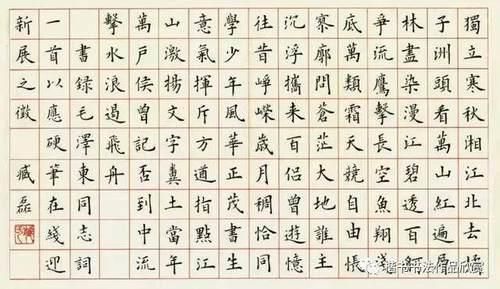 獨立寒秋湘江北去橘
子洲頭看萬山紅遍層
林盡染漫江碧透百舸
爭流鷹擊長空魚翔淺
底萬類霜天競自由悵
寥廓問蒼茫大地誰主
沉浮攜來百侶曾遊憶
往昔崢嶸歲月稠恰同
學少年風華正茂書生
意氣揮斥方遒指點江
山激揚文字糞土當年
萬戶侯曾記否到中流
擊水浪遏飛舟
書録毛澤東同志詞
一首以應硬筆在綫迎
新展之徵 臧磊
楷书书法作品欣赏